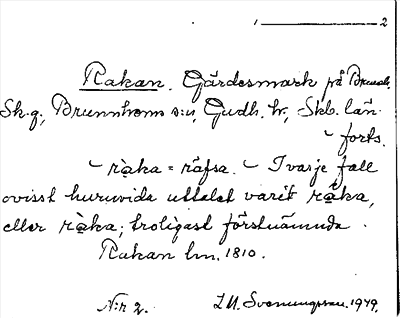 1 — 2
Rakan. Gärdesmark på
Sk.g., Brunnhems s:n, Gudh. hr, Skb. län.
forts.
– råka = räfsa. – I varje fall
ovisst huruvida uttalet varit råka,
eller ràka; troligast förstnämnda.
Rakan lm. 1810.
N:r 2. 1949.